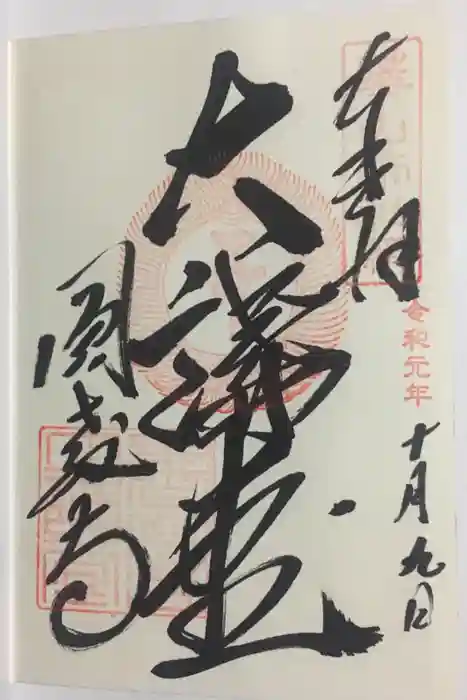 奉拝
令和元年
十月九日
大講堂
圓教寺